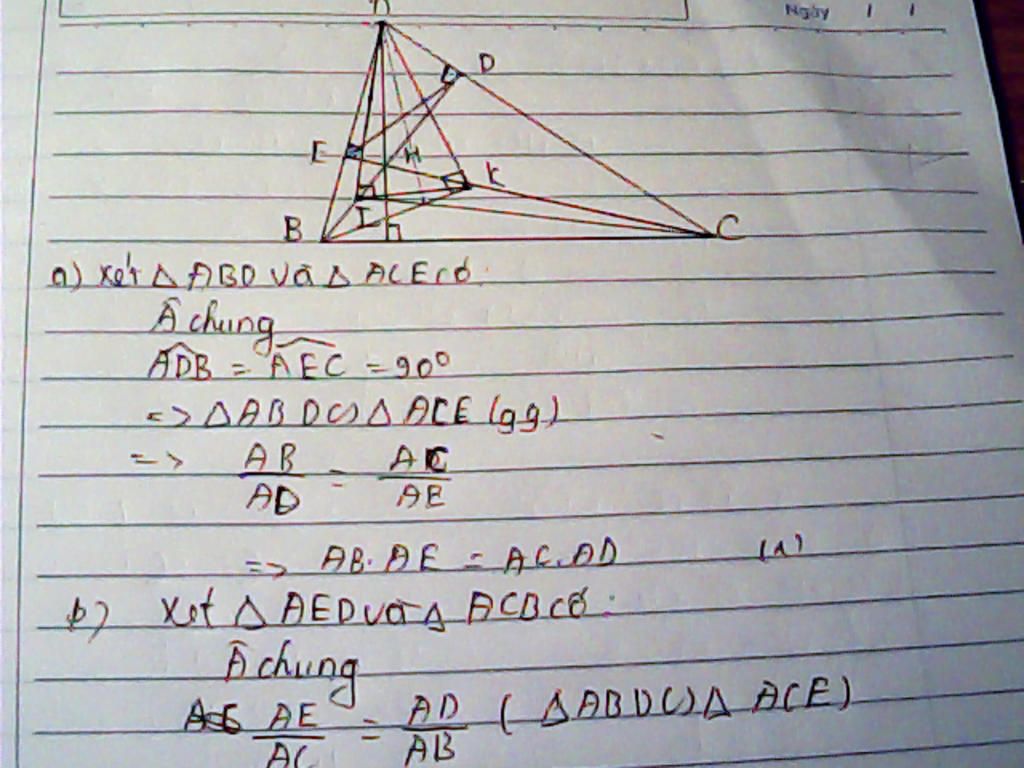 Ngày / /
D
E
H
K
I
B
C
a) Xét Δ ABD và Δ ACE có:
Â chung
ADB = AEC = 90°
=> Δ ABD ∽ Δ ACE (gg)
=> AB/AD = AC/AE
=> AB.AE = AC.AD (1)
b) Xét Δ AED và Δ ACB có:
Â chung
AE/AC = AD/AB (Δ ABD ∽ Δ ACE)